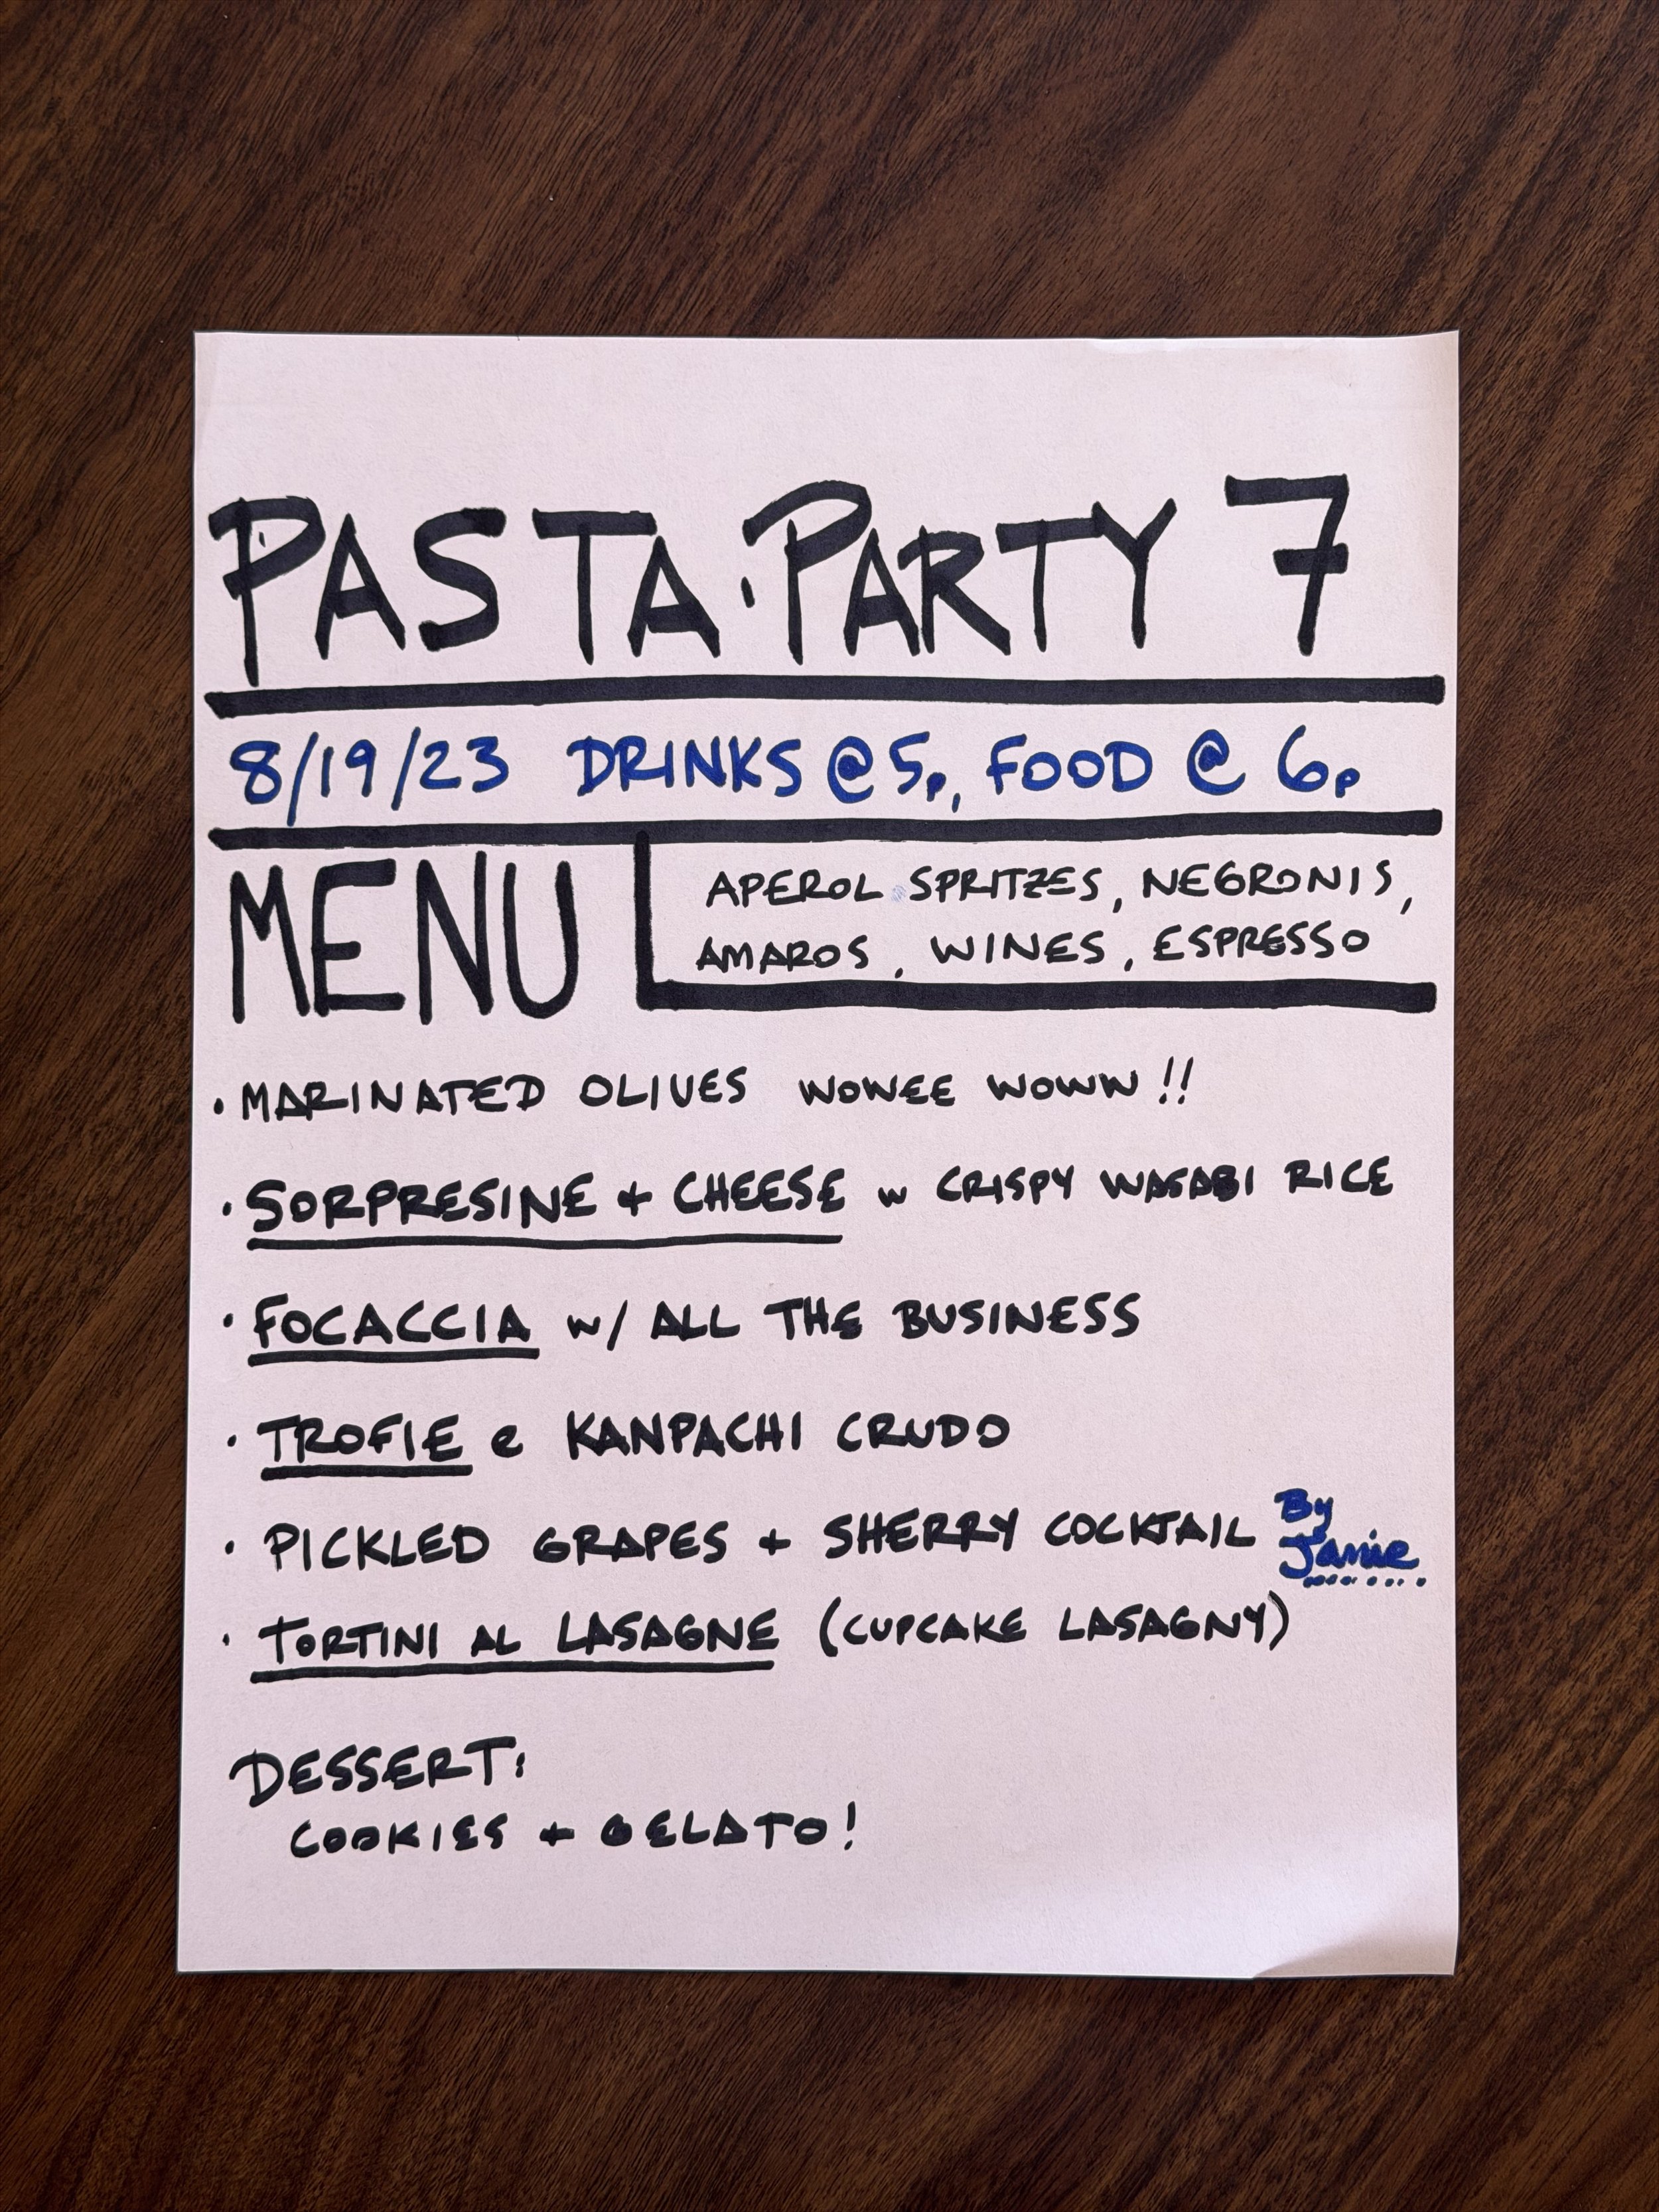 PASTA·PARTY 7
8/19/23 DRINKS @ 5P, FOOD @ 6P
MENU
APEROL SPRITZES, NEGRONIS,
AMAROS, WINES, ESPRESSO
• MARINATED OLIVES WOWEE WOWW!!
• SORPRESINE + CHEESE w CRISPY WASABI RICE
• FOCACCIA w/ ALL THE BUSINESS
• TROFIE e KANPACHI CRUDO
• PICKLED GRAPES + SHERRY COCKTAIL By Jamie
• TORTINI AL LASAGNE (CUPCAKE LASAGNY)
DESSERT:
COOKIES + GELATO!